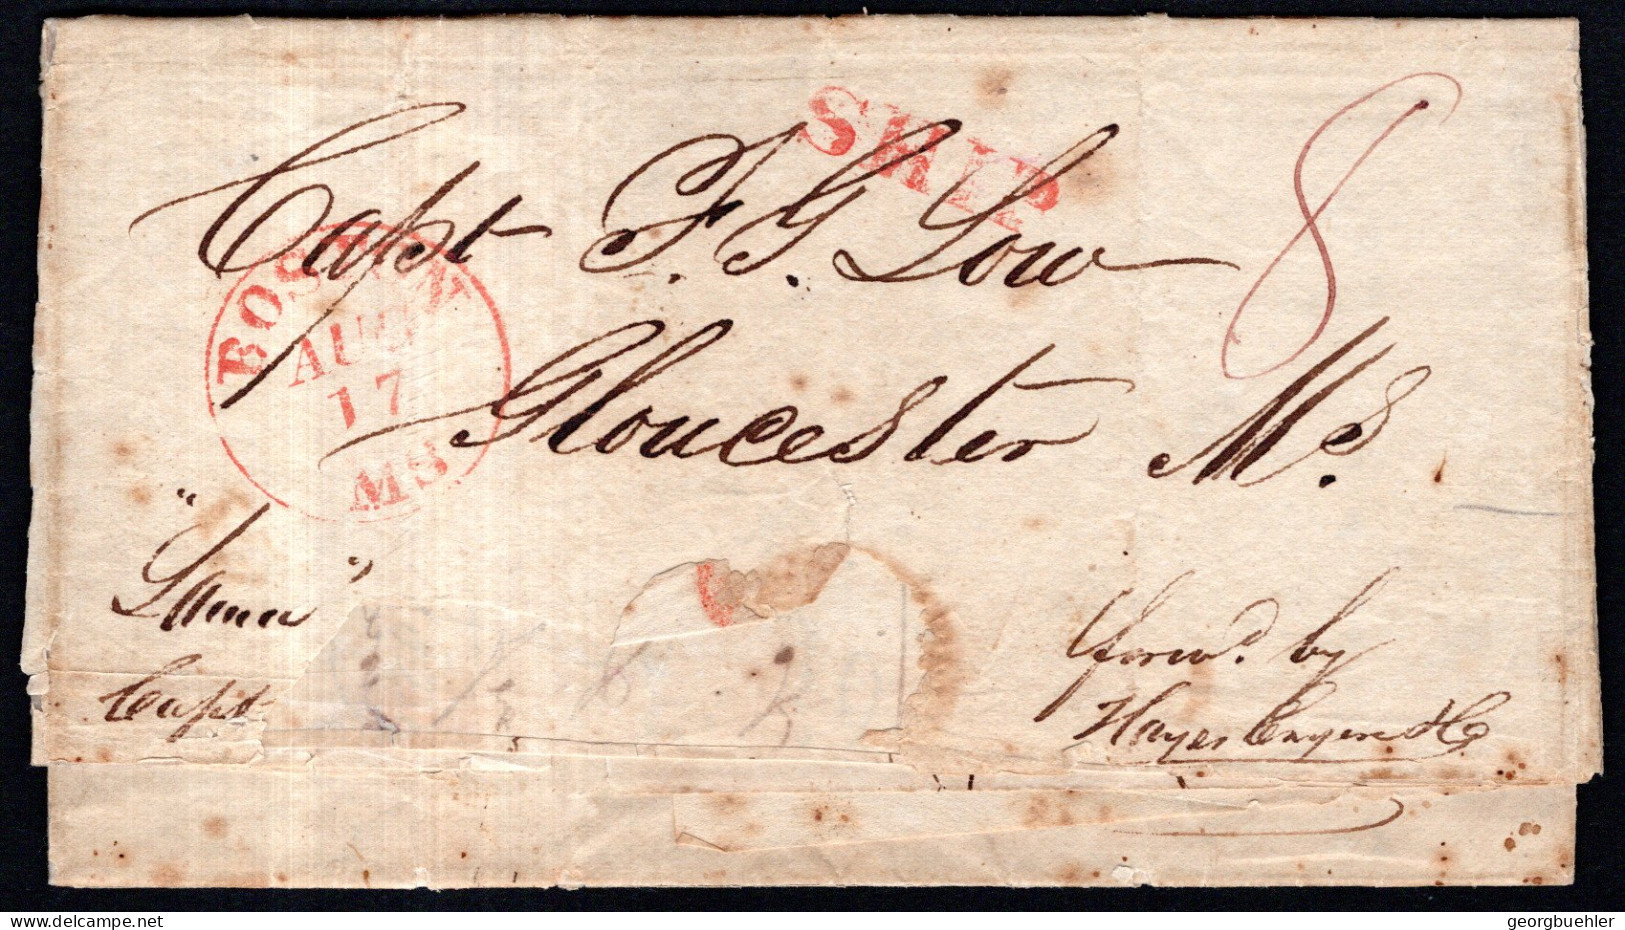 SHIP
8
Capt F. G. Low
BOSTON
AUG
17
MS
Gloucester Ms.
Capt
forwd. by
Hayes
delcampe.net
georgbuehler